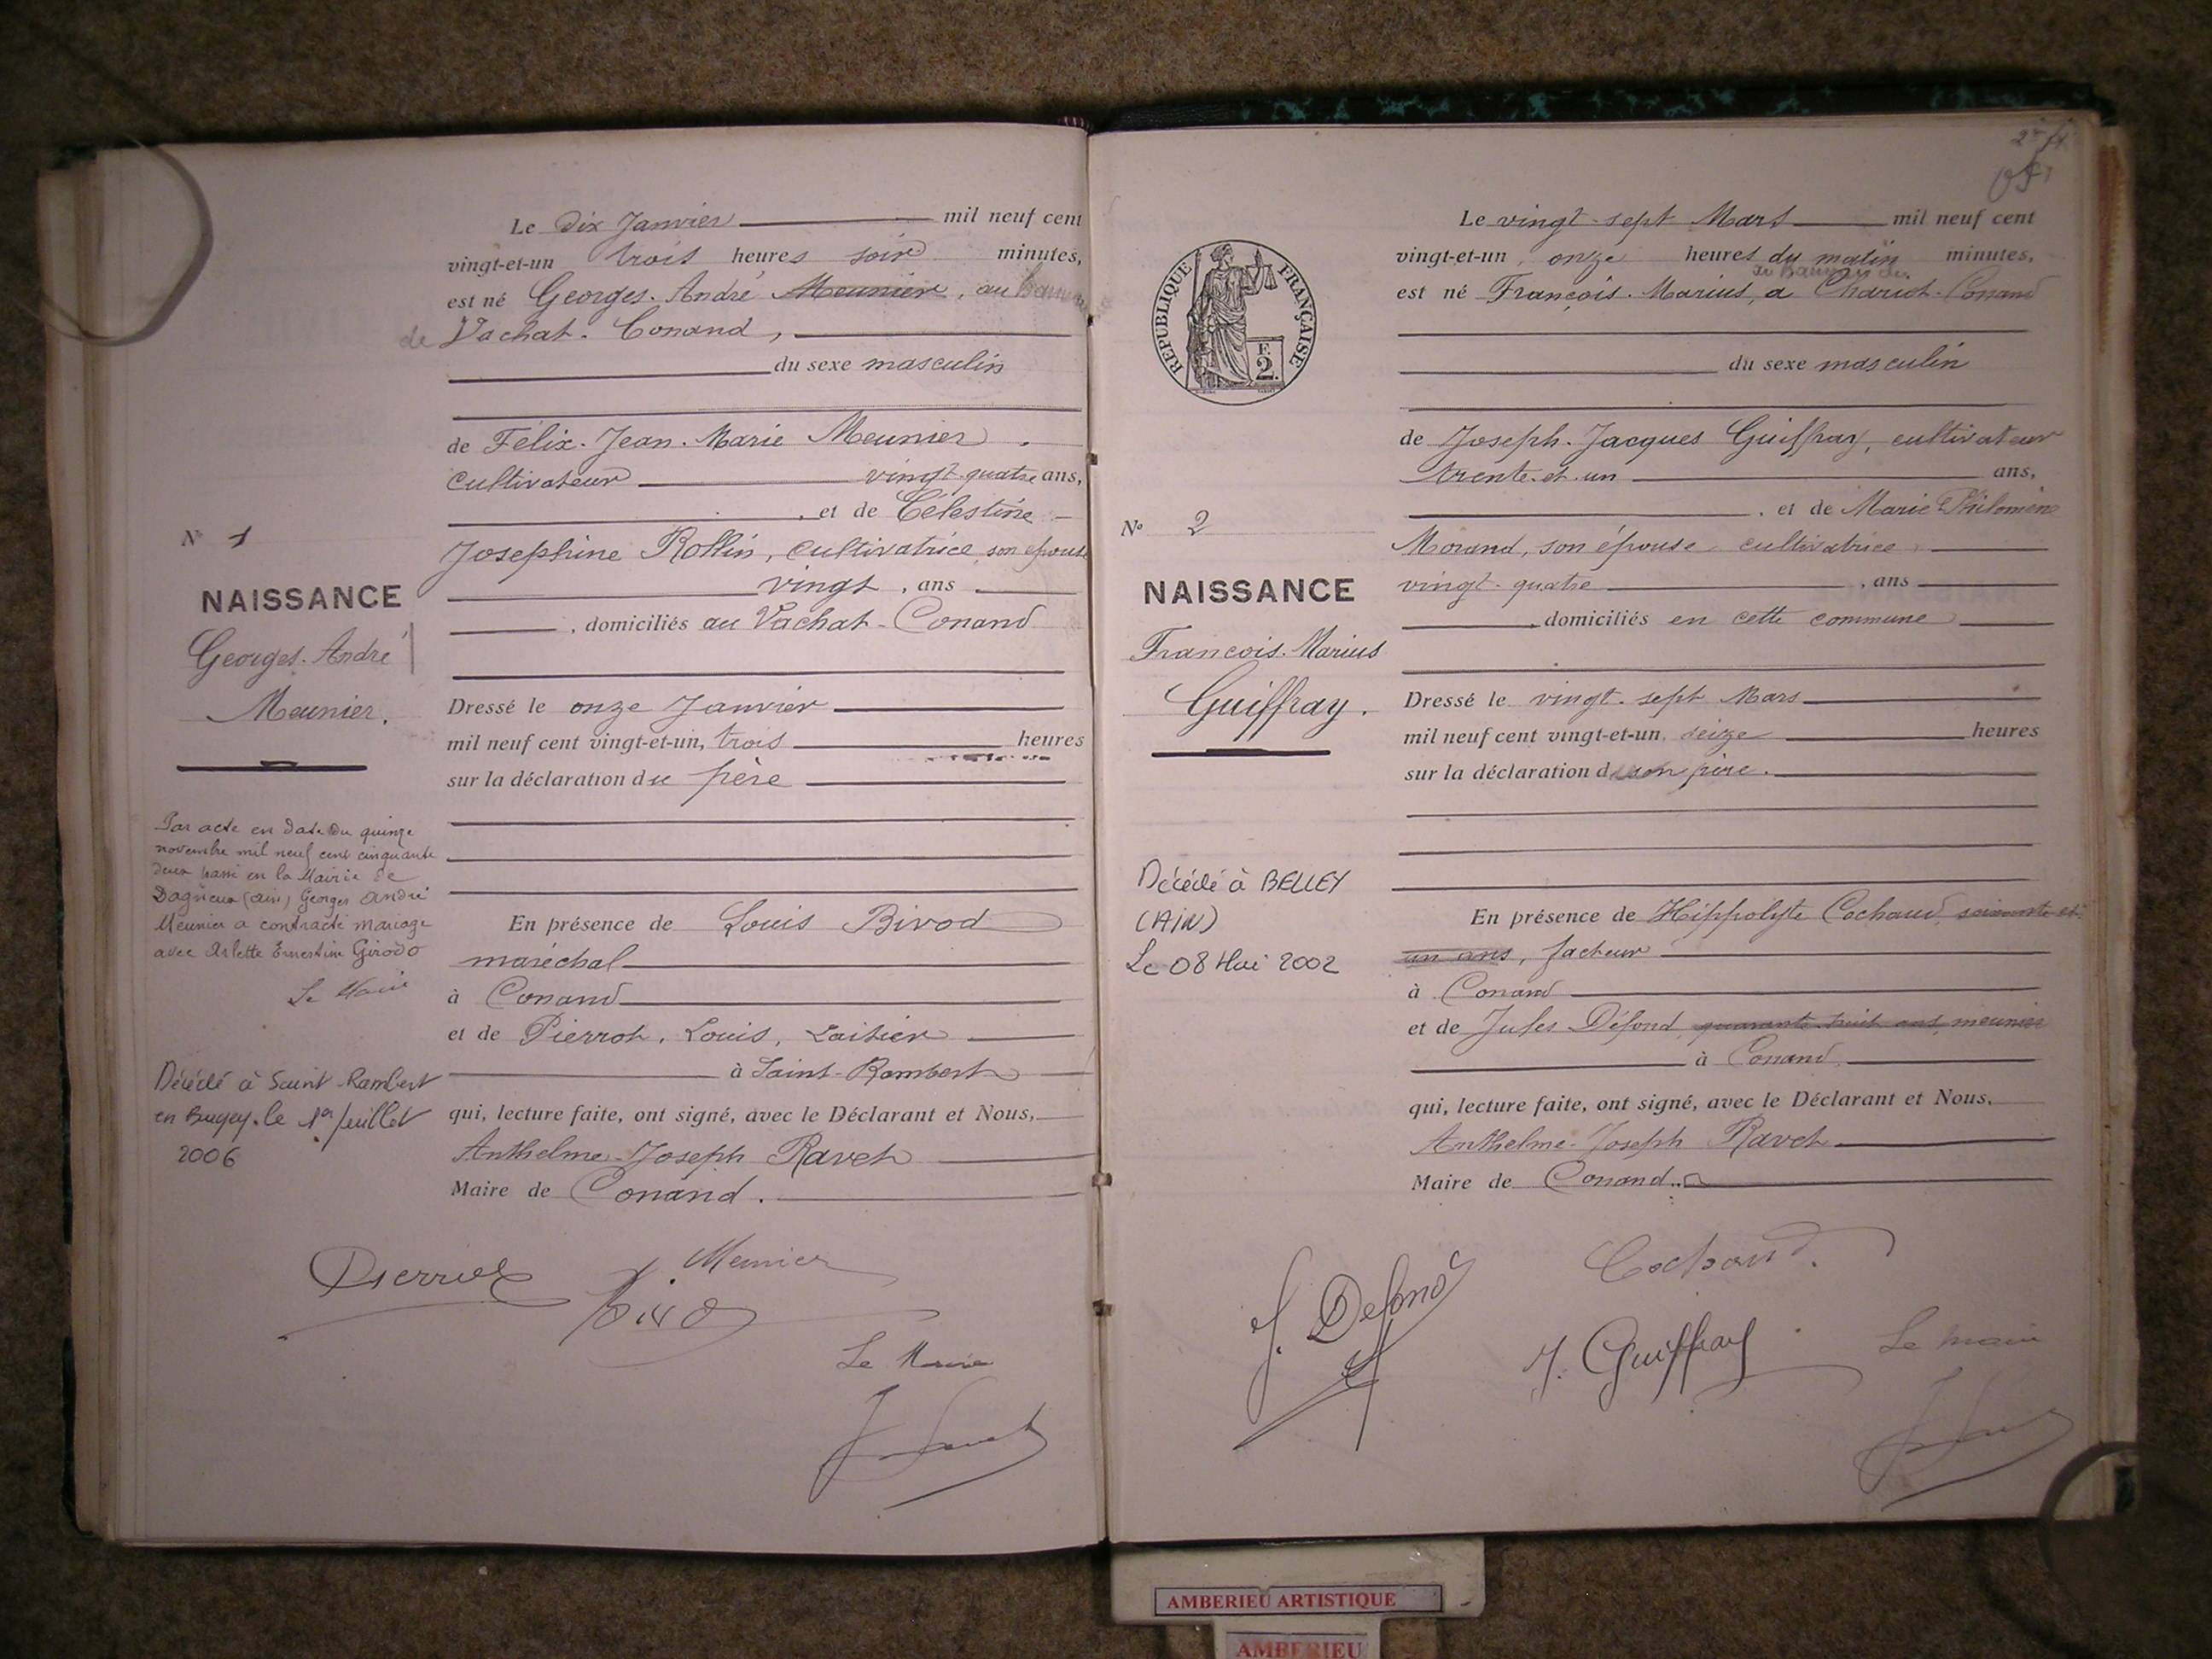 Le dix Janvier mil neuf cent
vingt-et-un trois heures soir minutes,
est né Georges-André Meunier, au
de Vachat-Conand,
du sexe masculin
de Félix-Jean-Marie Meunier,
cultivateur vingt-quatre ans,
, et de Célestine
Josephine Rollin, cultivatrice, son épouse
vingt, ans
, domiciliés au Vachat-Conand
Dressé le onze Janvier
mil neuf cent vingt-et-un, trois heures
sur la déclaration du père
En présence de Louis Bivod
maréchal
à Conand
et de Pierrot, Louis, Laitier
à Saint-Rambert
qui, lecture faite, ont signé, avec le Déclarant et Nous,
Anthelme-Joseph Ravet
Maire de Conand.
N° 1
NAISSANCE
Georges-André
Meunier.
Par acte en date du quinze
novembre mil neuf cent cinquante
deux passé en la Mairie de
Dagneux (ain) Georges André
Meunier a contracté mariage
avec Arlette Ernestine Girodo
Le Maire
Décédé à Saint-Rambert
en Bugey. le 1er Juillet
2006
Meunier
Le Maire
Le vingt-sept Mars mil neuf cent
vingt-et-un, onze heures du matin minutes,
est né François-Marius, a Charvet-Conand
du sexe masculin
de Joseph-Jacques Guiffray, cultivateur
trente-et-un ans,
, et de Marie Philomène
Morand, son épouse, cultivatrice,
vingt-quatre, ans
, domiciliés en cette commune
Dressé le vingt-sept Mars
mil neuf cent vingt-et-un, seize heures
sur la déclaration de son père.
En présence de Hippolyte Cochaud, soixante et
un ans, facteur
à Conand
et de Jules Défond, quarante-huit ans, meunier
à Conand
qui, lecture faite, ont signé, avec le Déclarant et Nous,
Anthelme-Joseph Ravet
Maire de Conand.
RÉPUBLIQUE FRANÇAISE
F.
2.
N° 2
NAISSANCE
François-Marius
Guiffray.
Décédé à BELLEY
(AIN)
Le 08 Mai 2002
J. Defond
Cochaud
J. Guiffray
Le maire
AMBERIEU ARTISTIQUE
AMBERIEU